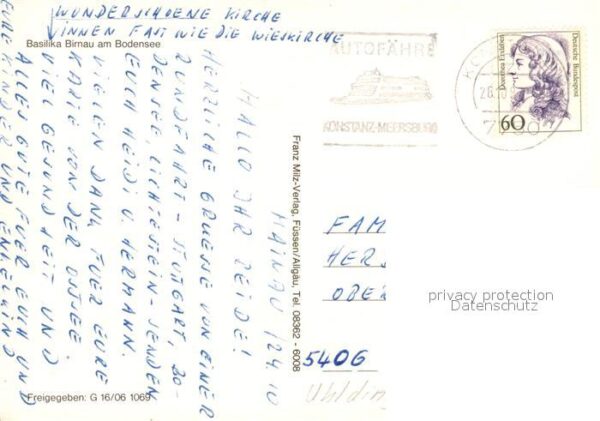 WUNDERSCHOENE KIRCHE
INNEN FAST WIE DIE WIESKIRCHE
Basilika Birnau am Bodensee
MAINAU 24.10
HALLO IHR BEIDE!
HERZLICHE GRUESSE VON EINER
RUNDFAHRT - STUTTGART, BO-
DENSEE, LICHTESTEIN - SENDEN
EUCH HEIDI U HERMANN.
VIELEN DANK FUER EURE
KARTE VON DER OSTSEE.
VIEL GESUNDHEIT UND
ALLES GUTE FUER EUCH UND
EURE KINDER UND
Freigegeben: G 16/06 1069
Franz Milz-Verlag, Füssen/Allgäu, Tel. 08362 - 6008
AUTOFÄHRE
KONSTANZ-MEERSBURG
Deutsche Bundespost
Dorothea Erxleben
60
FAM
HER
OBER
privacy protection
Datenschutz
5406
Uhldin